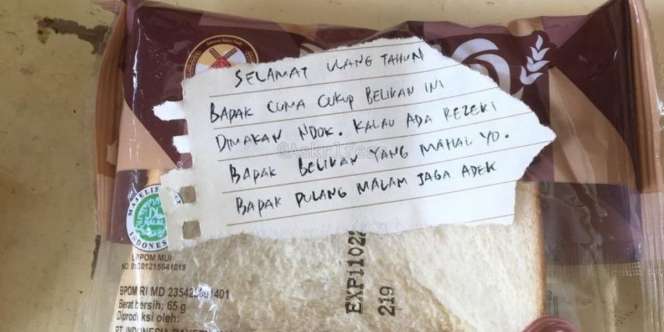 SELAMAT ULANG TAHUN
BAPAK CUMA CUKUP BELIKAN INI
DIMAKAN NDOK. KALAU ADA REZEKI
BAPAK BELIKAN YANG MAHAL YO.
BAPAK PULANG MALAM JAGA ADEK
MAJELIS
HALAL
INDONESIA
LPPOM MUI
BPOM RI MD
Berat bersih: 65 g
Diproduksi oleh:
EXP1102
219